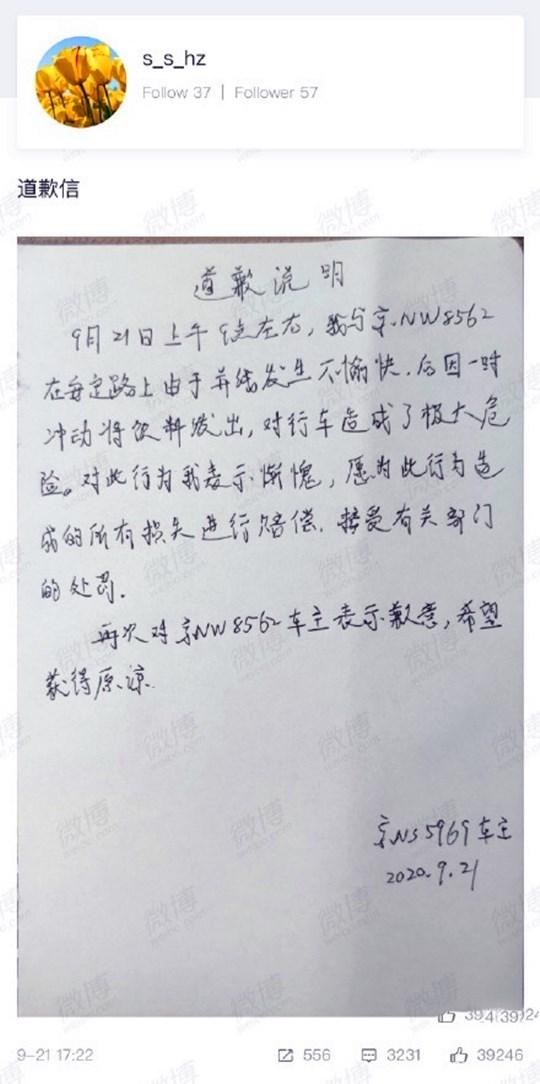 s_s_hz
Follow 37 | Follower 57
道歉信
道歉说明
9月21日上午9点左右，我与京·NW8562
在安定路上由于并线发生不愉快．后因一时
冲动将饮料发出，对行车造成了极大危
险。对此行为我表示惭愧，愿为此行为造
成的所有损失进行赔偿．接受有关部门
的处罚．
再次对京NW8562车主表示歉意，希望
获得原谅．
京NS5969车主
2020.9.21
9-21 17:22
556
3231
39246
微博
weibo.com